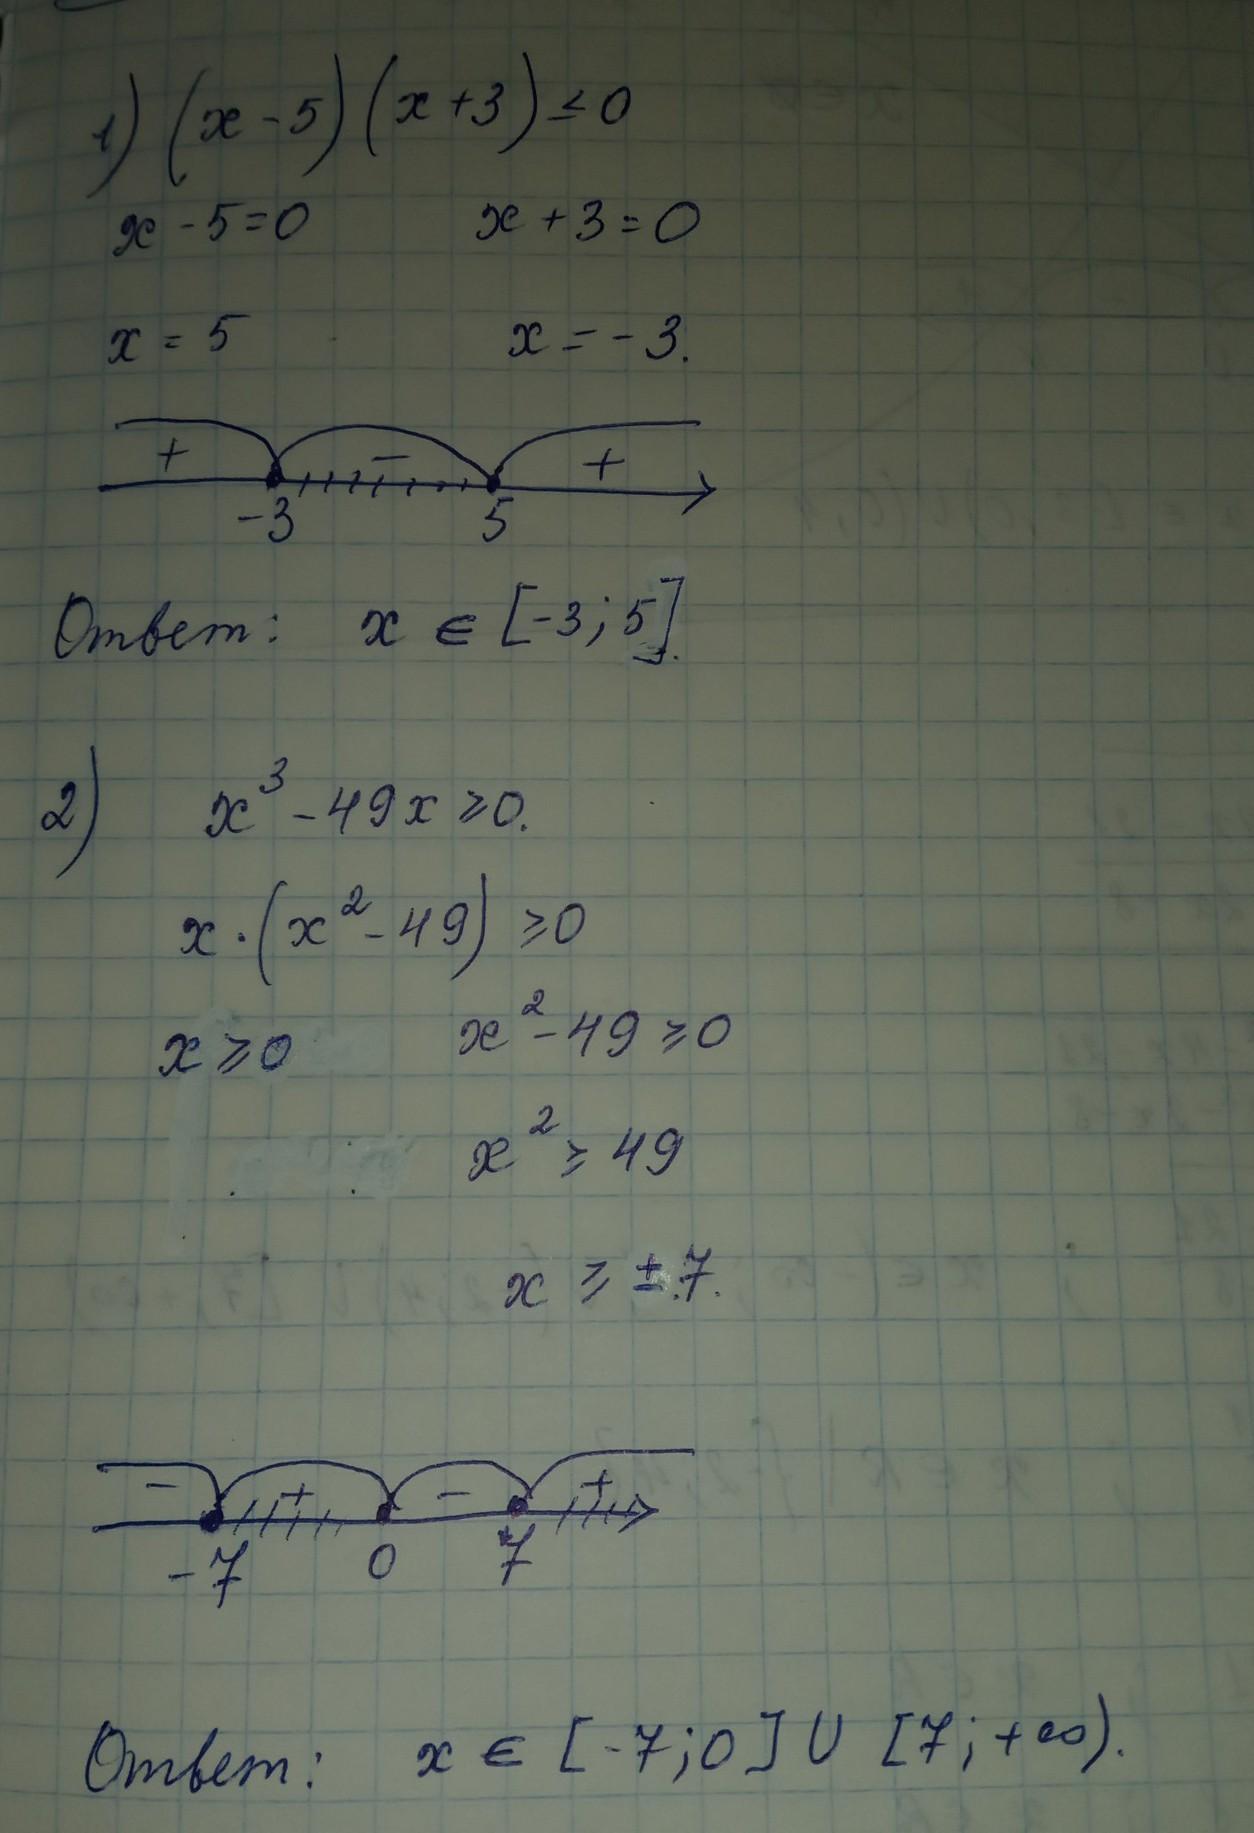 1) (x - 5)(x + 3) ≤ 0
x - 5 = 0 x + 3 = 0
x = 5 x = - 3.
+ - +
-3 5
Ответ: x ∈ [-3; 5].
2) x³ - 49x ≥ 0.
x · (x² - 49) ≥ 0
x ≥ 0 x² - 49 ≥ 0
x² ≥ 49
x ≥ ± 7.
- + - +
-7 0 7
Ответ: x ∈ [-7; 0] ∪ [7; +∞).